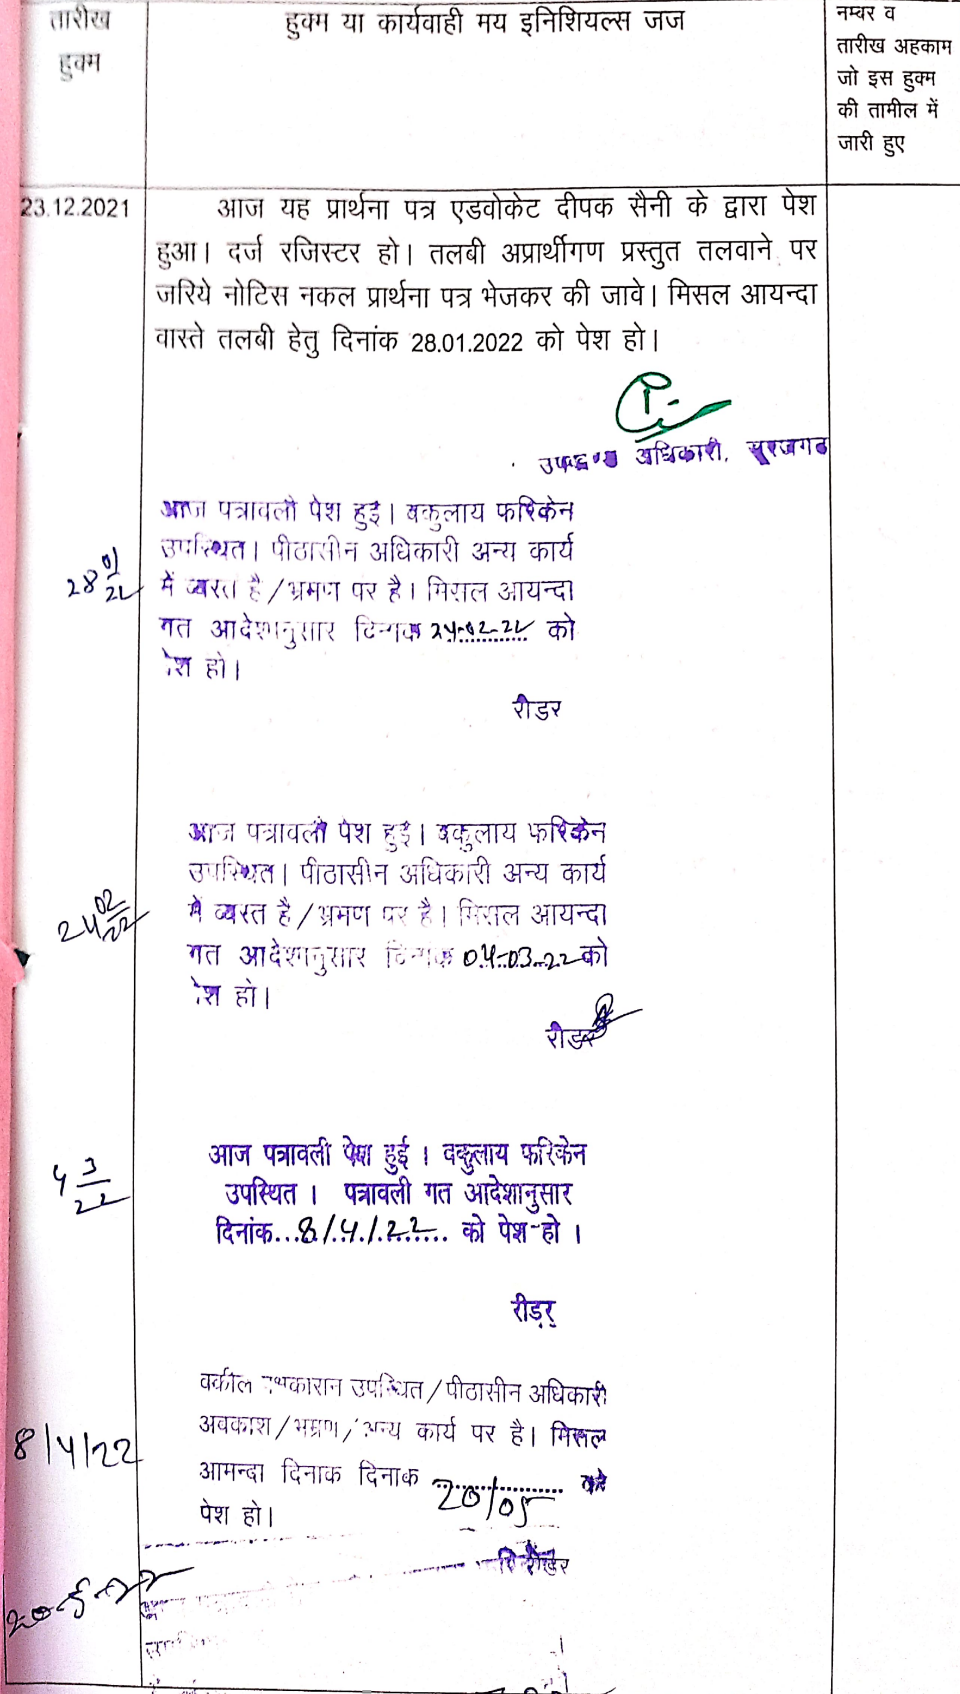 तारीख
हुक्म
हुक्म या कार्यवाही मय इनिशियल्स जज
नम्बर व
तारीख अहकाम
जो इस हुक्म
की तामील में
जारी हुए
23.12.2021
आज यह प्रार्थना पत्र एडवोकेट दीपक सैनी के द्वारा पेश
हुआ। दर्ज रजिस्टर हो। तलबी अप्रार्थीगण प्रस्तुत तलवाने पर
जरिये नोटिस नकल प्रार्थना पत्र भेजकर की जावे। मिसल आयन्दा
वास्ते तलबी हेतु दिनांक 28.01.2022 को पेश हो।
उपखण्ड अधिकारी, सूरजगढ
आज पत्रावली पेश हुई। वकुलाय फरिकेन
उपस्थित। पीठासीन अधिकारी अन्य कार्य
28 01/22 में व्यस्त है/भ्रमण पर है। मिसल आयन्दा
गत आदेशानुसार दिनांक 24-02-22 को
पेश हो।
रीडर
आज पत्रावली पेश हुई। वकुलाय फरिकेन
उपस्थित। पीठासीन अधिकारी अन्य कार्य
24 02/22 में व्यस्त है/भ्रमण पर है। मिसल आयन्दा
गत आदेशानुसार दिनांक 04-03-22 को
पेश हो।
रीडर
आज पत्रावली पेश हुई । वकुलाय फरिकेन
4 3/22 उपस्थित । पत्रावली गत आदेशानुसार
दिनांक...8/4/22.... को पेश हो ।
रीडर
वकील पक्षकारान उपस्थित/पीठासीन अधिकारी
अवकाश/भम्रण/अन्य कार्य पर है। मिसल
8/4/22 आमन्दा दिनाक दिनाक 20/05 को
पेश हो।
रीडर
20-5-22